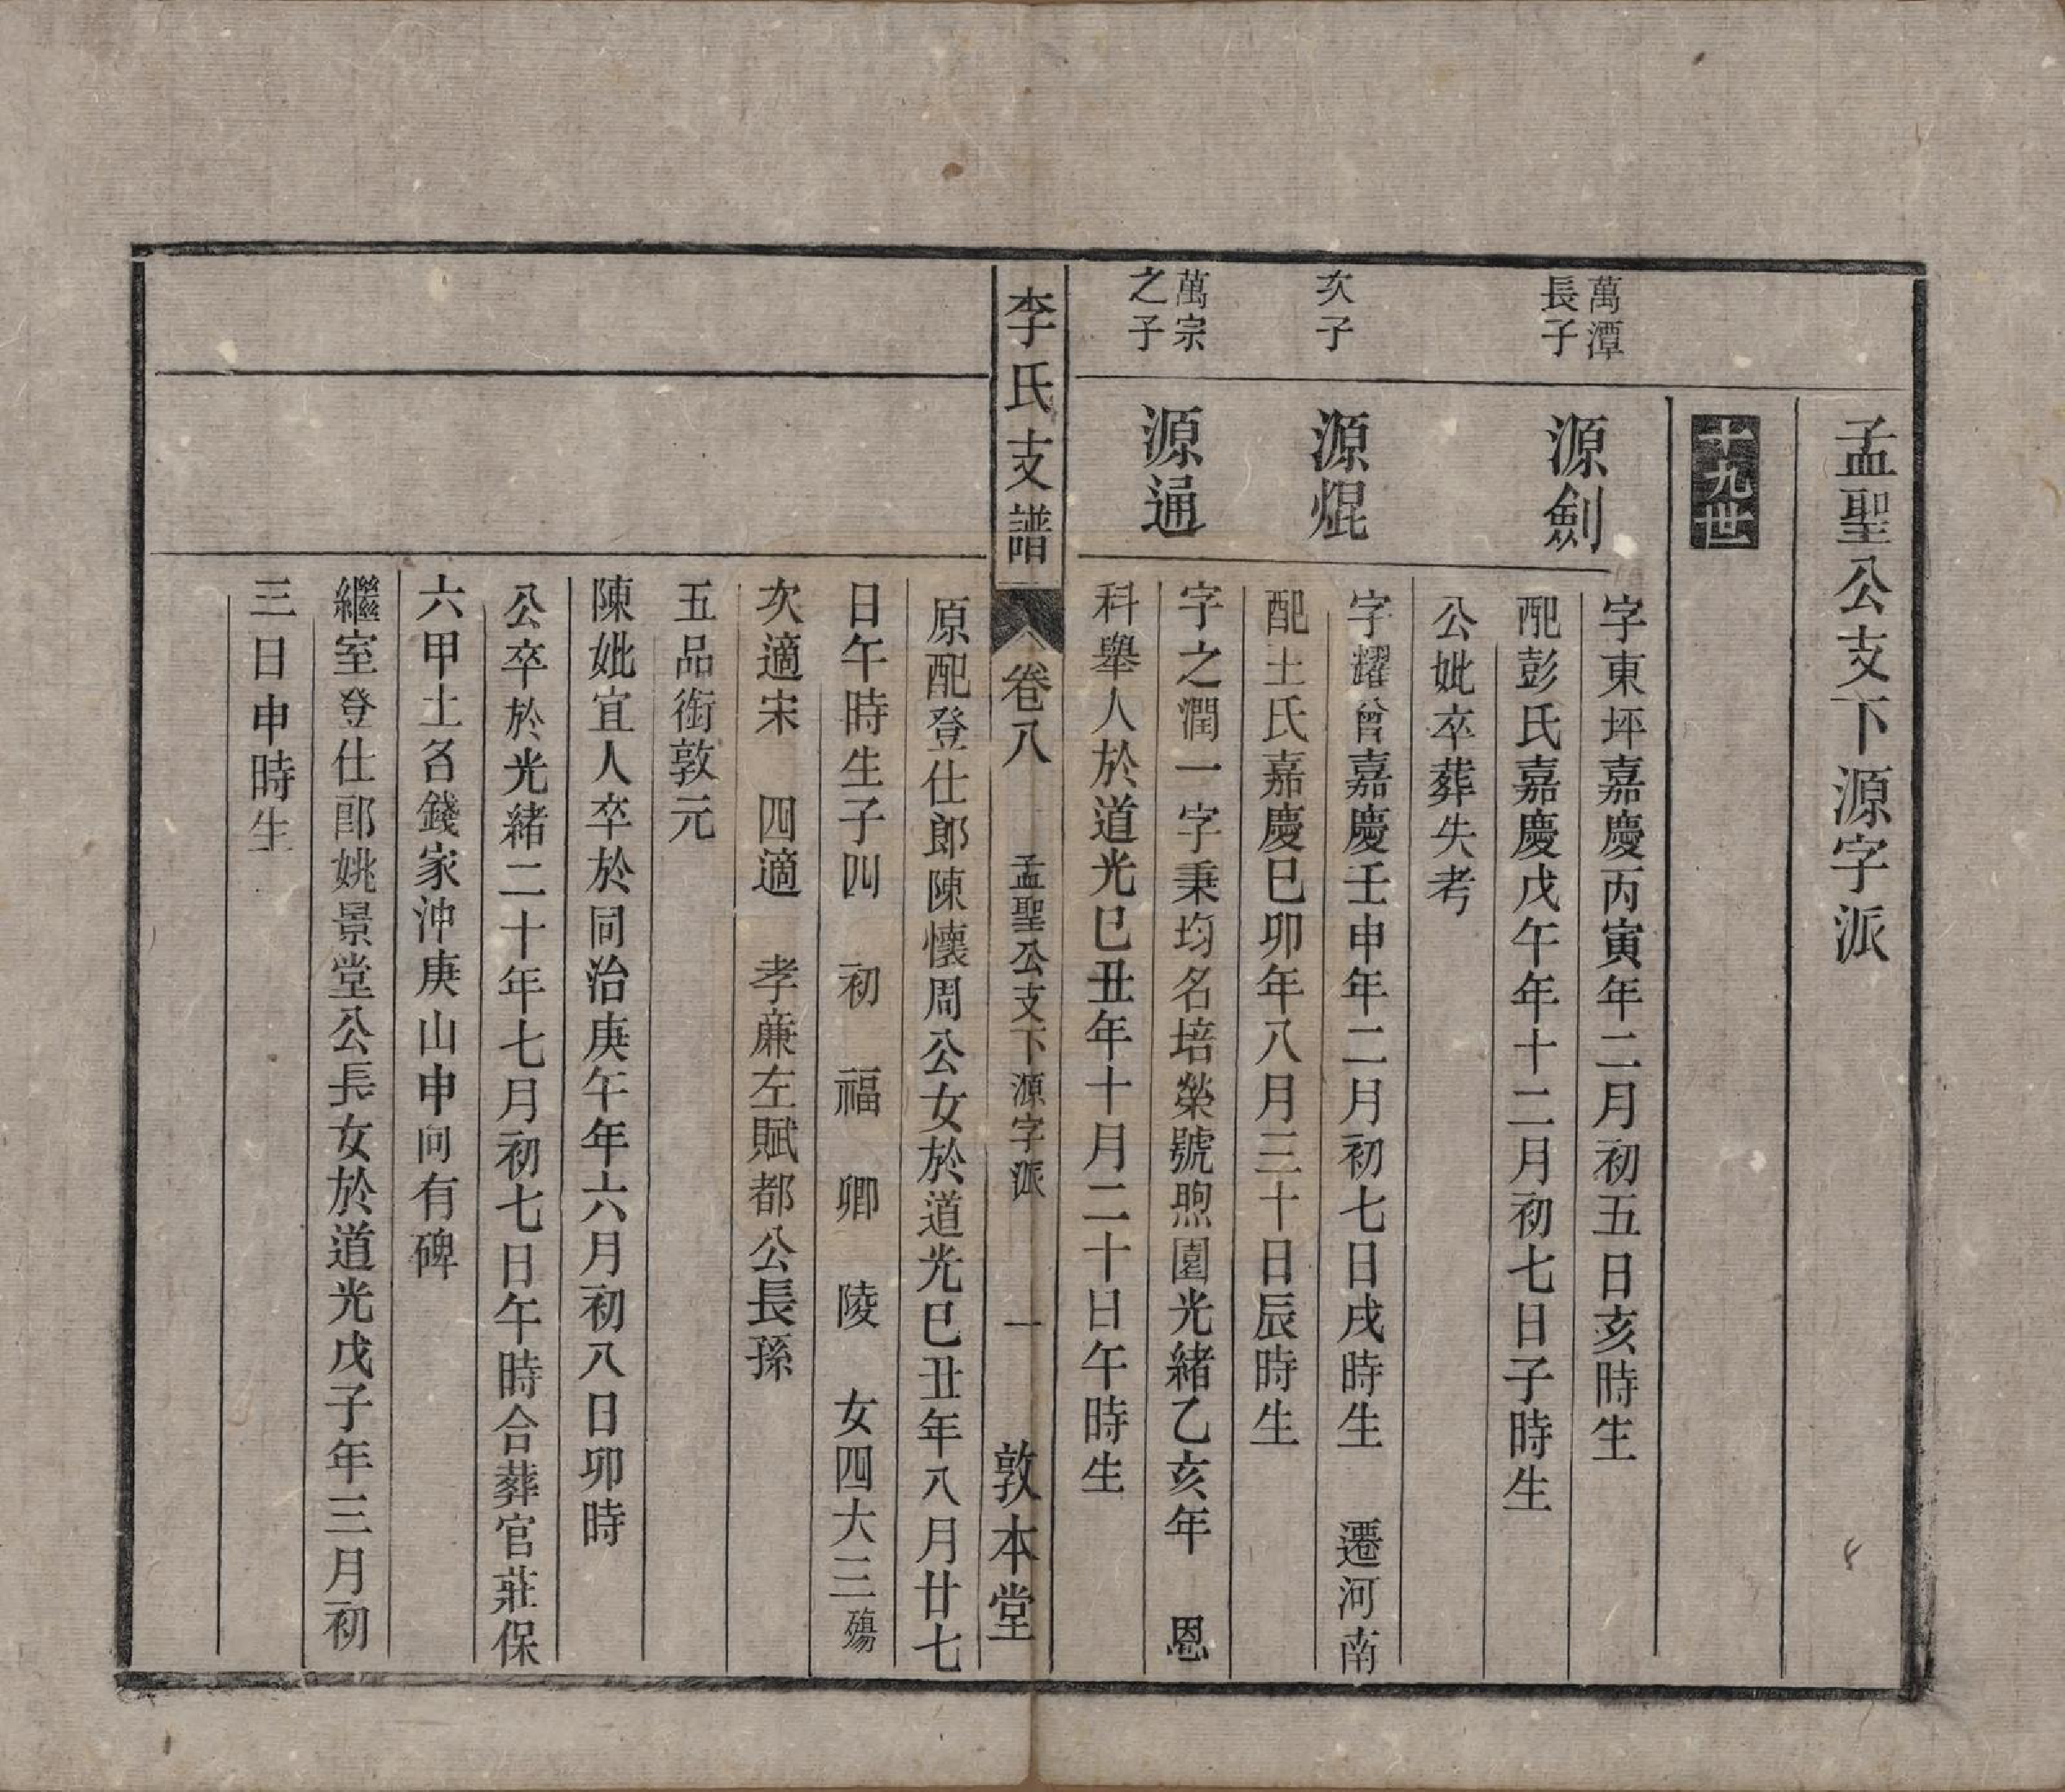 孟聖公支下源字派
十九世
萬潭
長子
源劍
字東坪嘉慶丙寅年二月初五日亥時生
配彭氏嘉慶戊午年十二月初七日子時生
公妣卒葬失考
次子
源焜
字耀曾嘉慶壬申年二月初七日戌時生 遷河南
配土氏嘉慶巳卯年八月三十日辰時生
萬宗
之子
源通
字之潤一字秉均名培榮號煦園光緒乙亥年 恩
科舉人於道光巳丑年十月二十日午時生
李氏支譜
卷八
孟聖公支下源字派
一
敦本堂
原配登仕郎陳懷周公女於道光巳丑年八月廿七
日午時生子四 初 福 卿 陵 女四大三殤
次適宋 四適 孝廉左賦都公長孫
五品銜敦元
陳妣宜人卒於同治庚午年六月初八日卯時
公卒於光緒二十年七月初七日午時合葬官莊保
六甲土名錢家沖庚山申向有碑
繼室登仕郎姚景堂公長女於道光戊子年三月初
三日申時生